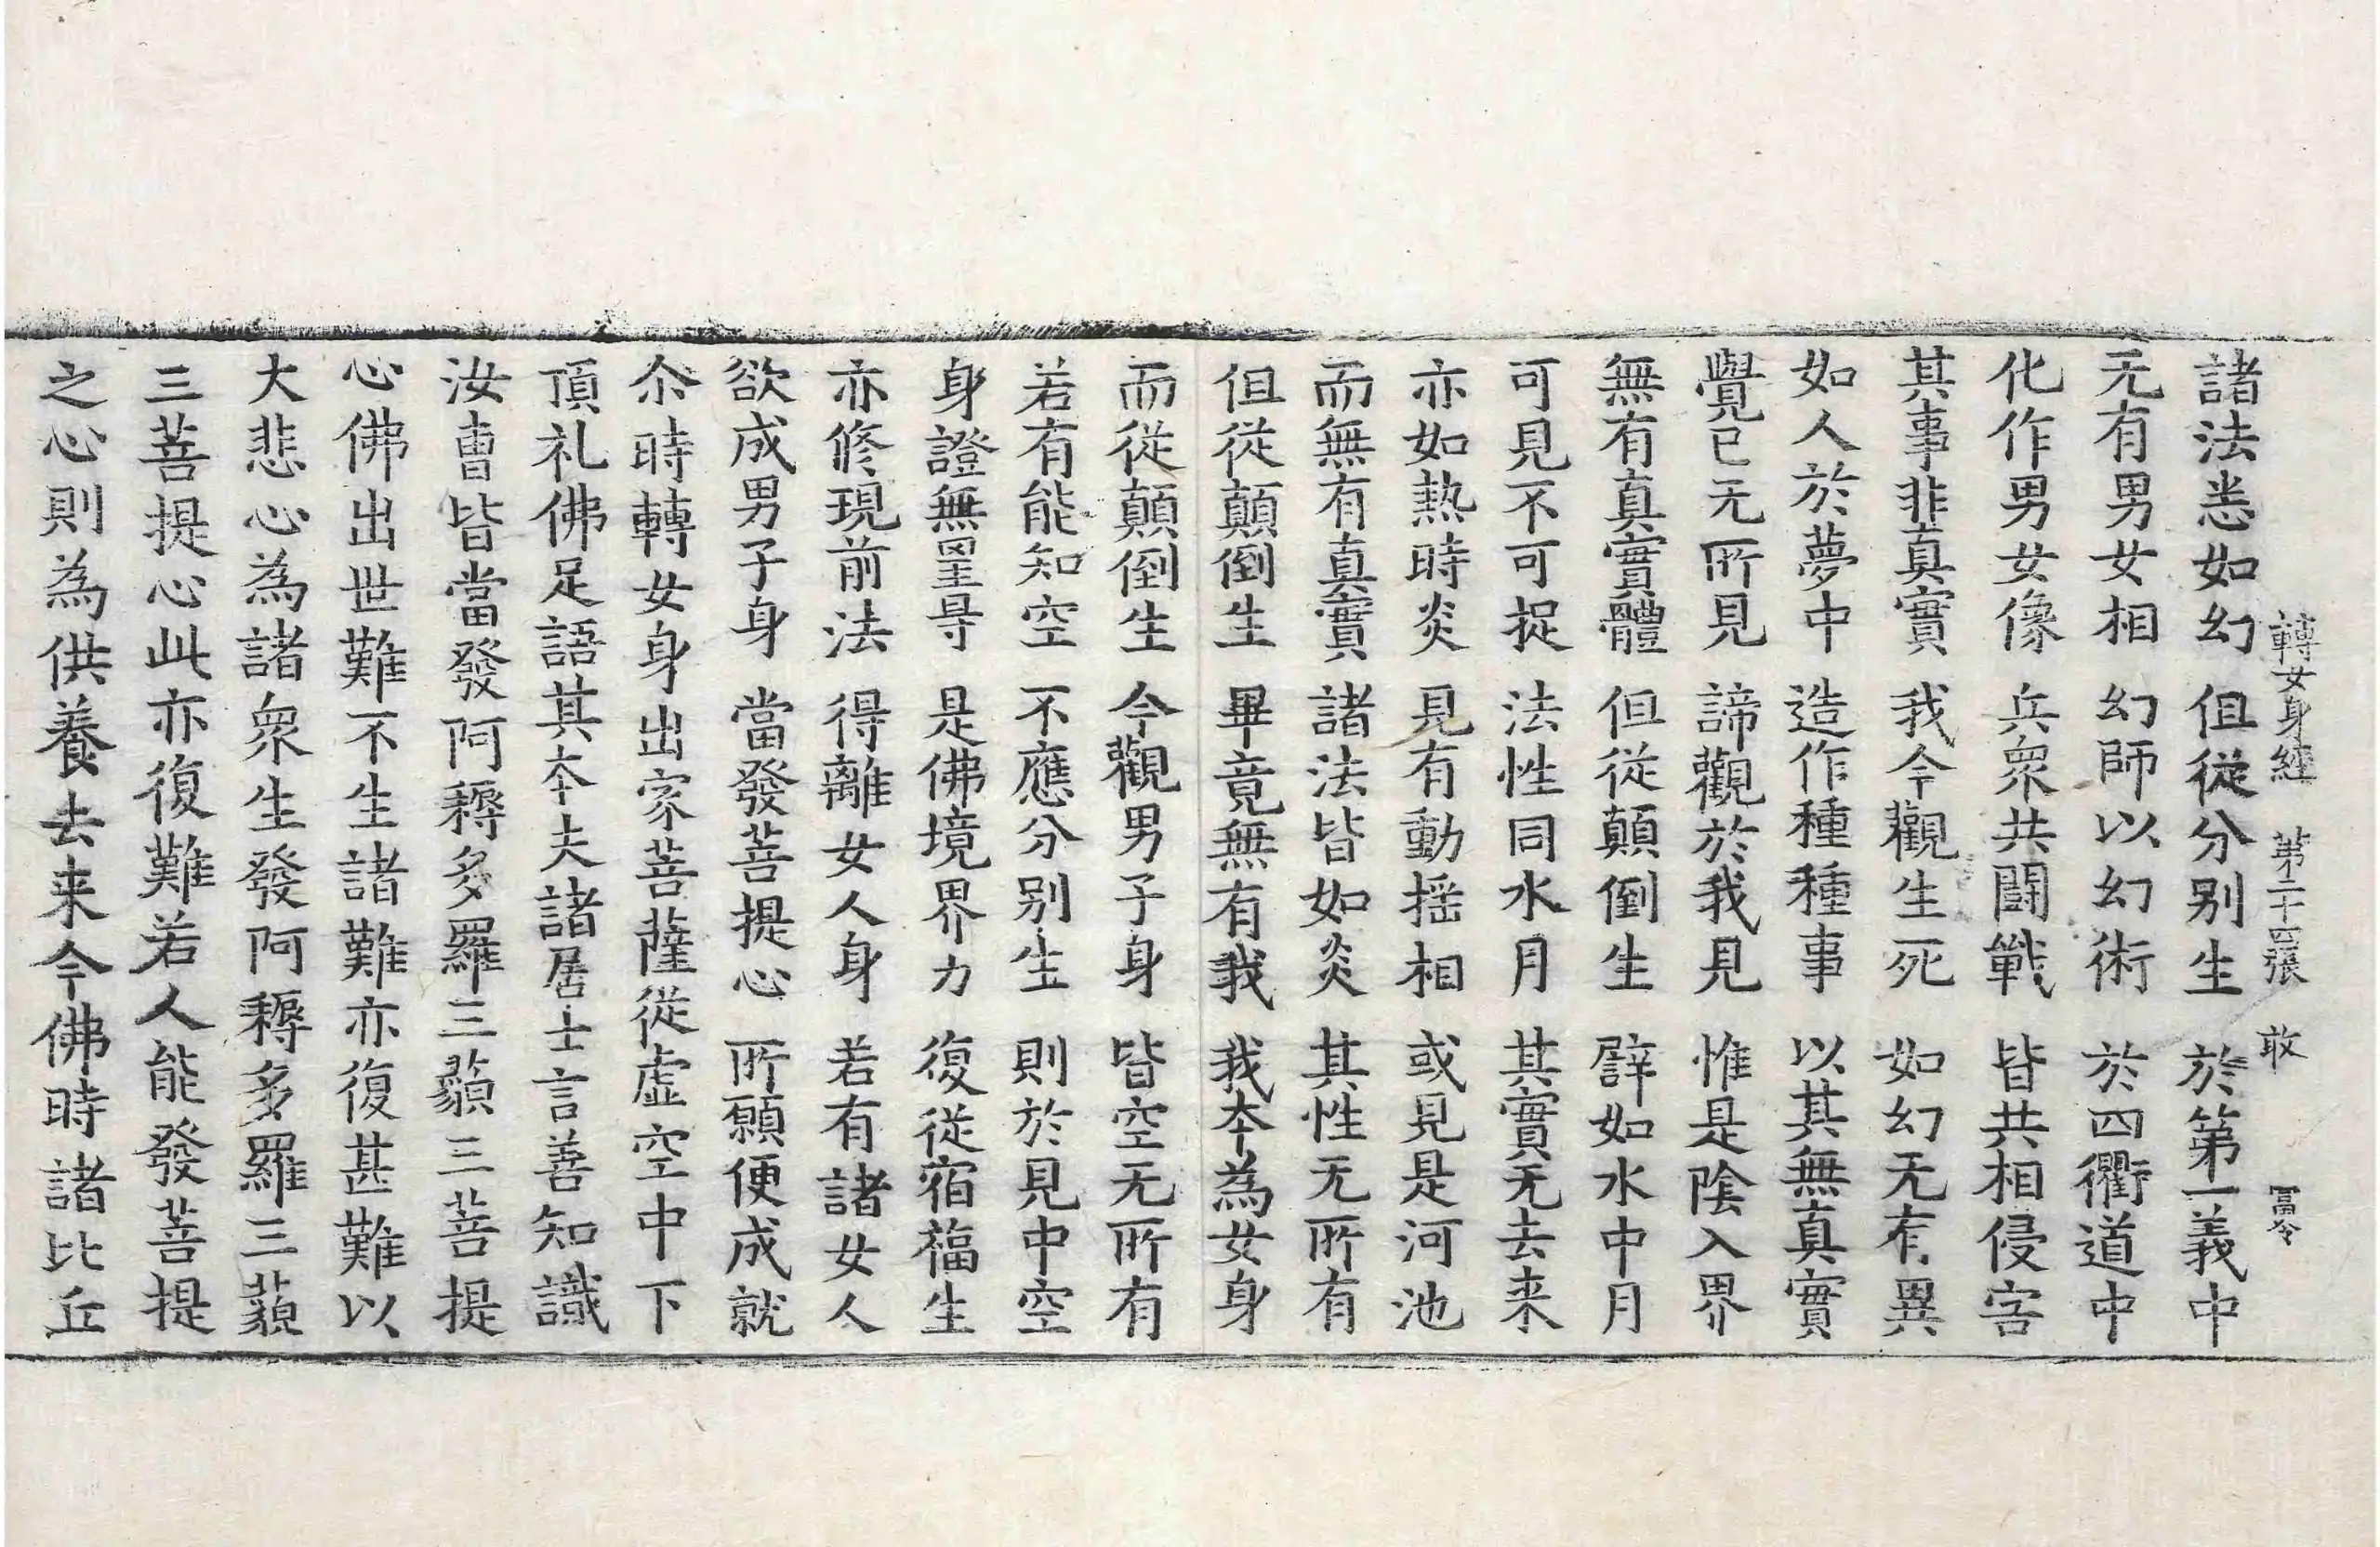 轉女身經 苐二十四張 敢 冨令
諸法悉如幻 但從分別生 於第一義中
无有男女相 幻師以幻術 於四衢道中
化作男女像 兵衆共鬪戰 皆共相侵害
其事非真實 我今觀生死 如幻无有異
如人於夢中 造作種種事 以其無真實
覺已无所見 諦觀於我見 惟是陰入界
無有真實體 但從顛倒生 譬如水中月
可見不可捉 法性同水月 其實无去来
亦如熱時炎 見有動揺相 或見是河池
而無有真實 諸法皆如炎 其性无所有
但從顛倒生 畢竟無有我 我本為女身
而從顛倒生 今觀男子身 皆空无所有
若有能知空 不應分別生 則於見中空
身證無罣㝵 是佛境界力 復從宿福生
亦修現前法 得離女人身 若有諸女人
欲成男子身 當發菩提心 所願便成就
尒時轉女身出家菩薩從虛空中下
頂礼佛足語其夲夫諸居士言善知識
汝曺皆當發阿耨多羅三藐三菩提
心佛出世難不生諸難亦復甚難以
大悲心為諸衆生發阿耨多羅三藐
三菩提心此亦復難若人能發菩提
之心則為供養去来今佛時諸比丘